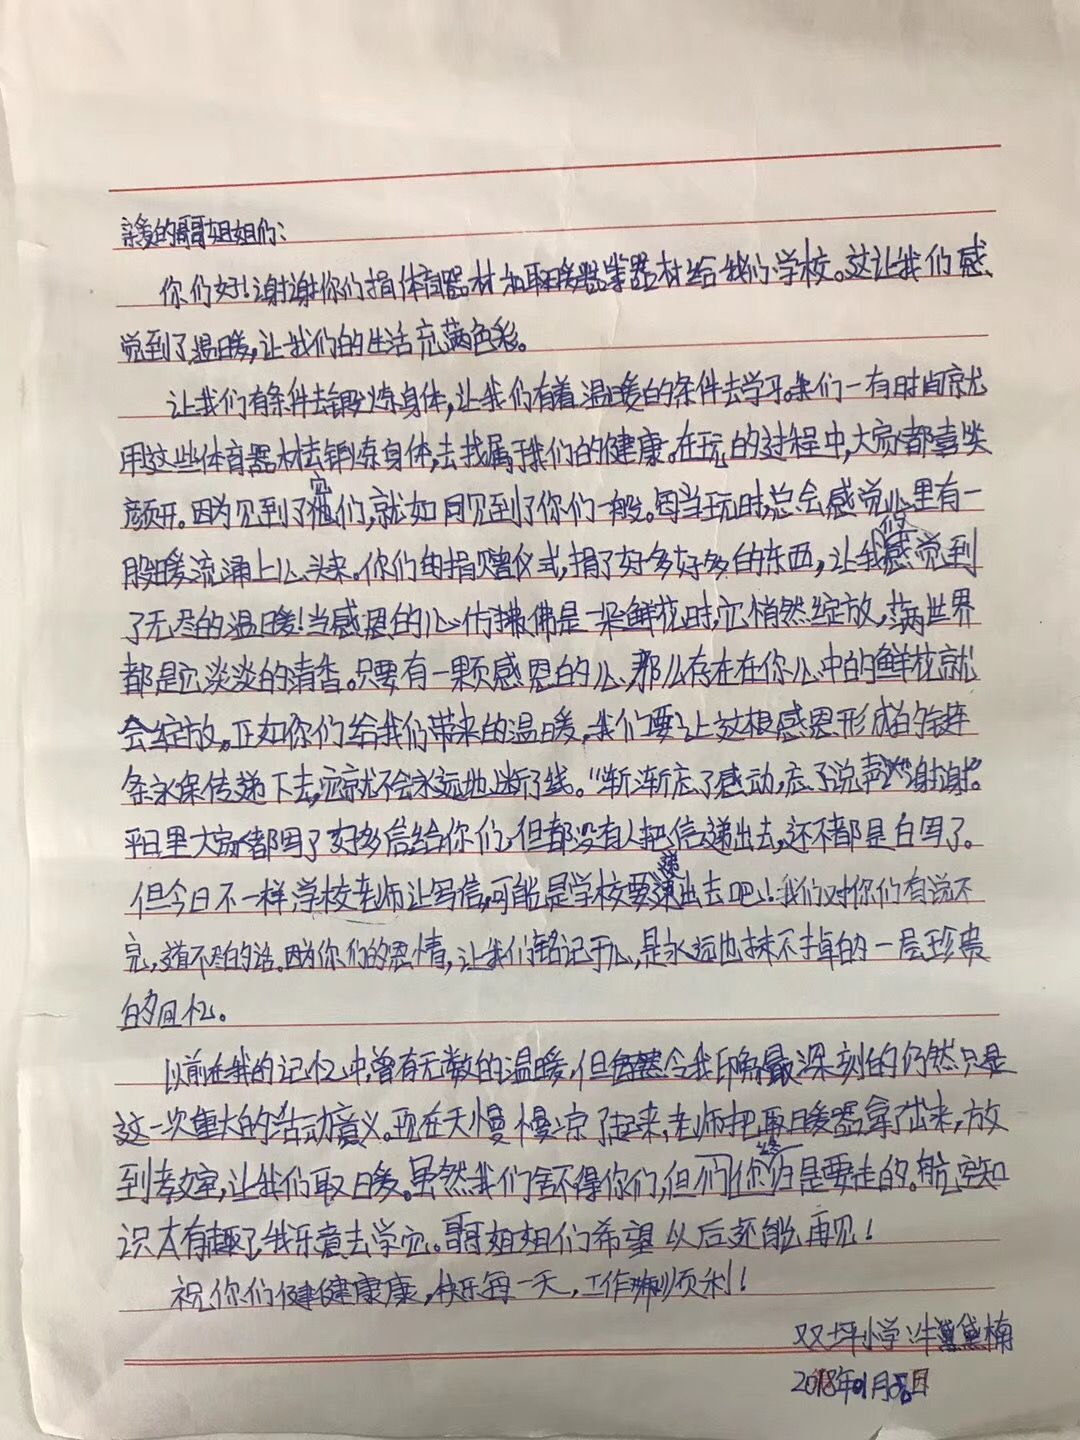 亲爱的哥哥姐姐们：
你们好！谢谢你们捐体育器材和取暖器等器材给我们学校。这让我们感
觉到了温暖，让我们的生活充满色彩。
让我们有条件去锻炼身体，让我们有着温暖的条件去学习。我们一有时间就
用这些体育器材去锻炼身体，去找属于我们的健康。在玩的过程中，大家都喜笑
颜开。因为见到了它们，就如同见到了你们一般。每当玩时，总会感觉心里有一
股暖流涌上心头来。你们的捐赠仪式，捐了好多好多的东西，让我们感觉到
了无尽的温暖！当感恩的心仿佛是一朵鲜花时，它悄然绽放，满世界
都是它淡淡的清香。只要有一颗感恩的心，那么存在在你心中的鲜花就
会绽放。正如你们给我们带来的温暖，我们要让这根感恩形成的链
条永保传递下去，它就不会永远地断了线。“渐渐忘了感动，忘了说声“谢谢”。
平日里大家都写了好多信给你们，但都没有人把信递出去，还不都是白写了。
但今日不一样，学校老师让写信，可能是学校要递出去吧！我们对你们有说不
完，道不尽的话。因为你们的恩情，让我们铭记于心，是永远也抹不掉的一层珍贵
的回忆。
以前在我的记忆中，曾有无数的温暖，但令我印象最深刻的仍然只是
这一次重大的“活动”意义。现在天慢慢凉了起来，老师把取暖器拿了出来，放
到教室，让我们取暖。虽然我们舍不得你们，但你们终归是要走的。航空知
识太有趣了，我乐意去学它。哥哥姐姐们希望以后还能再见！
祝你们健健康康，快乐每一天，工作顺利！
双坪小学：牛黛楠
2018年01月